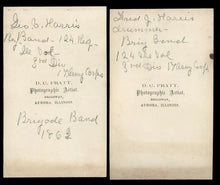 Geo W Harris
Band - 124 Reg
Ill Vol
3rd Div
17 Army Corps
D. C. PRATT,
Photographic Artist,
BROADWAY,
AURORA, ILLINOIS.
Brigade Band
1862
Fred J. Harris
drummer -
Brig Band
124 Ill Vol
3rd Div 17 Army Corps
D. C. PRATT,
Photographic Artist,
BROADWAY,
AURORA, ILLINOIS.